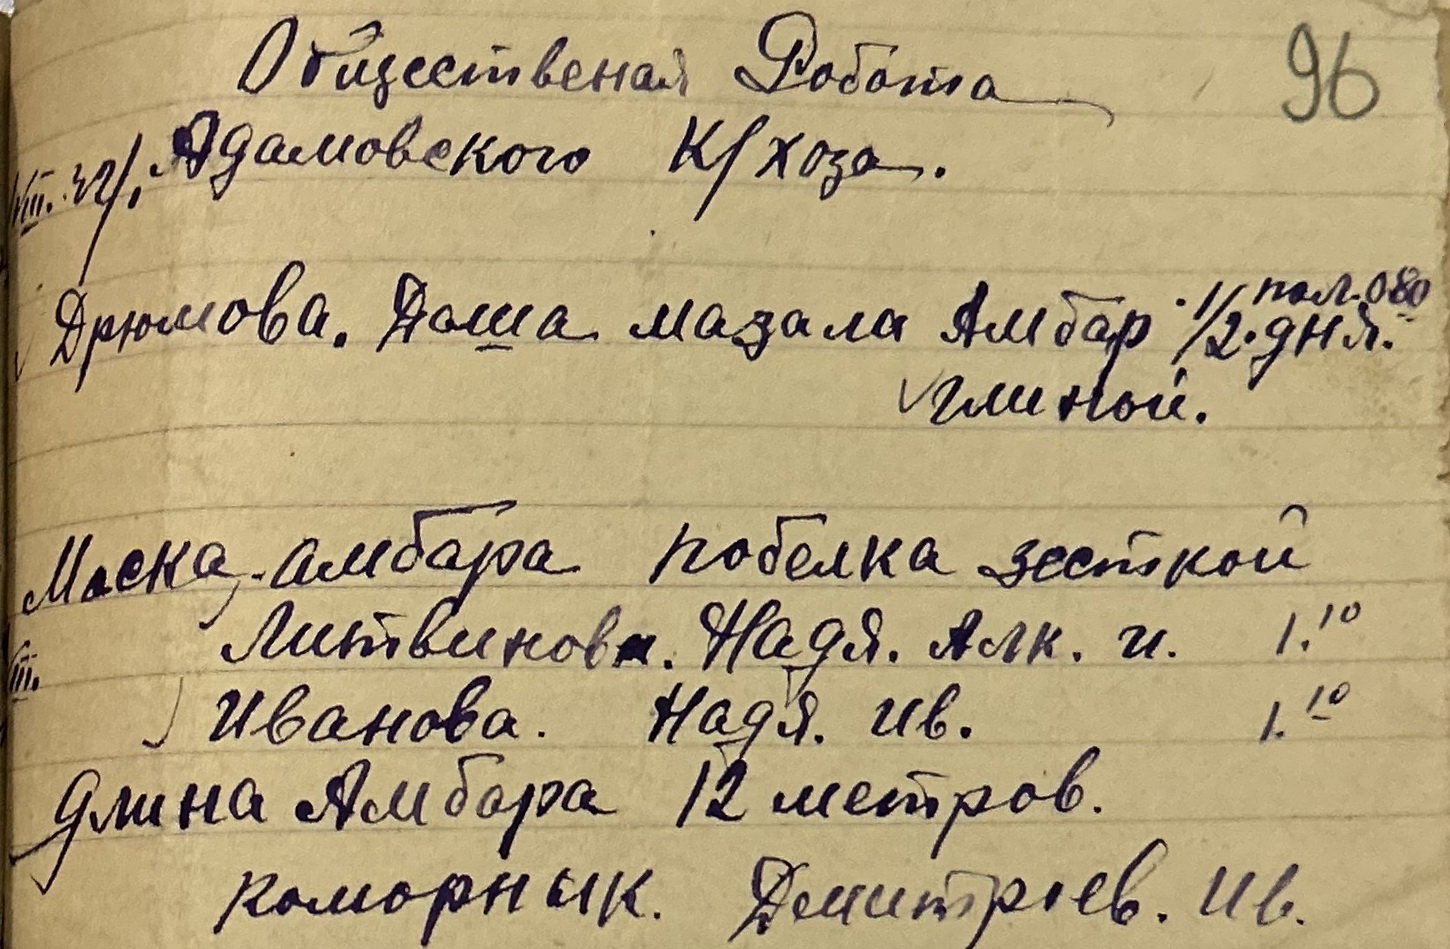 96
Общественая Робота
Адамовского К/хоза.
VIII. 42/.
Дрюмова. Даша мазала Амбар 1/2. дня. пол. 080
глиной.
Маска, амбара побелка зесткой
Литвинова. Надя. Алк. и. 1.10
VIII.
Иванова. Надя. Ив. 1.10
длина Амбара 12 метров.
коморнык. Демитрıев. Ив.